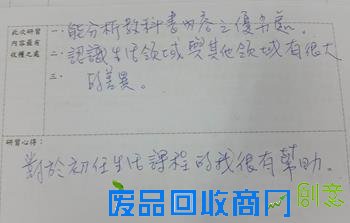 此次研習
內容最有
收穫之處
一、能分析教科書內容之優劣處。
二、認識生活領域與其他領域有很大
三、的差異。
研習心得:
對於初任生活課程的我很有幫助。
创意
废品回收商网